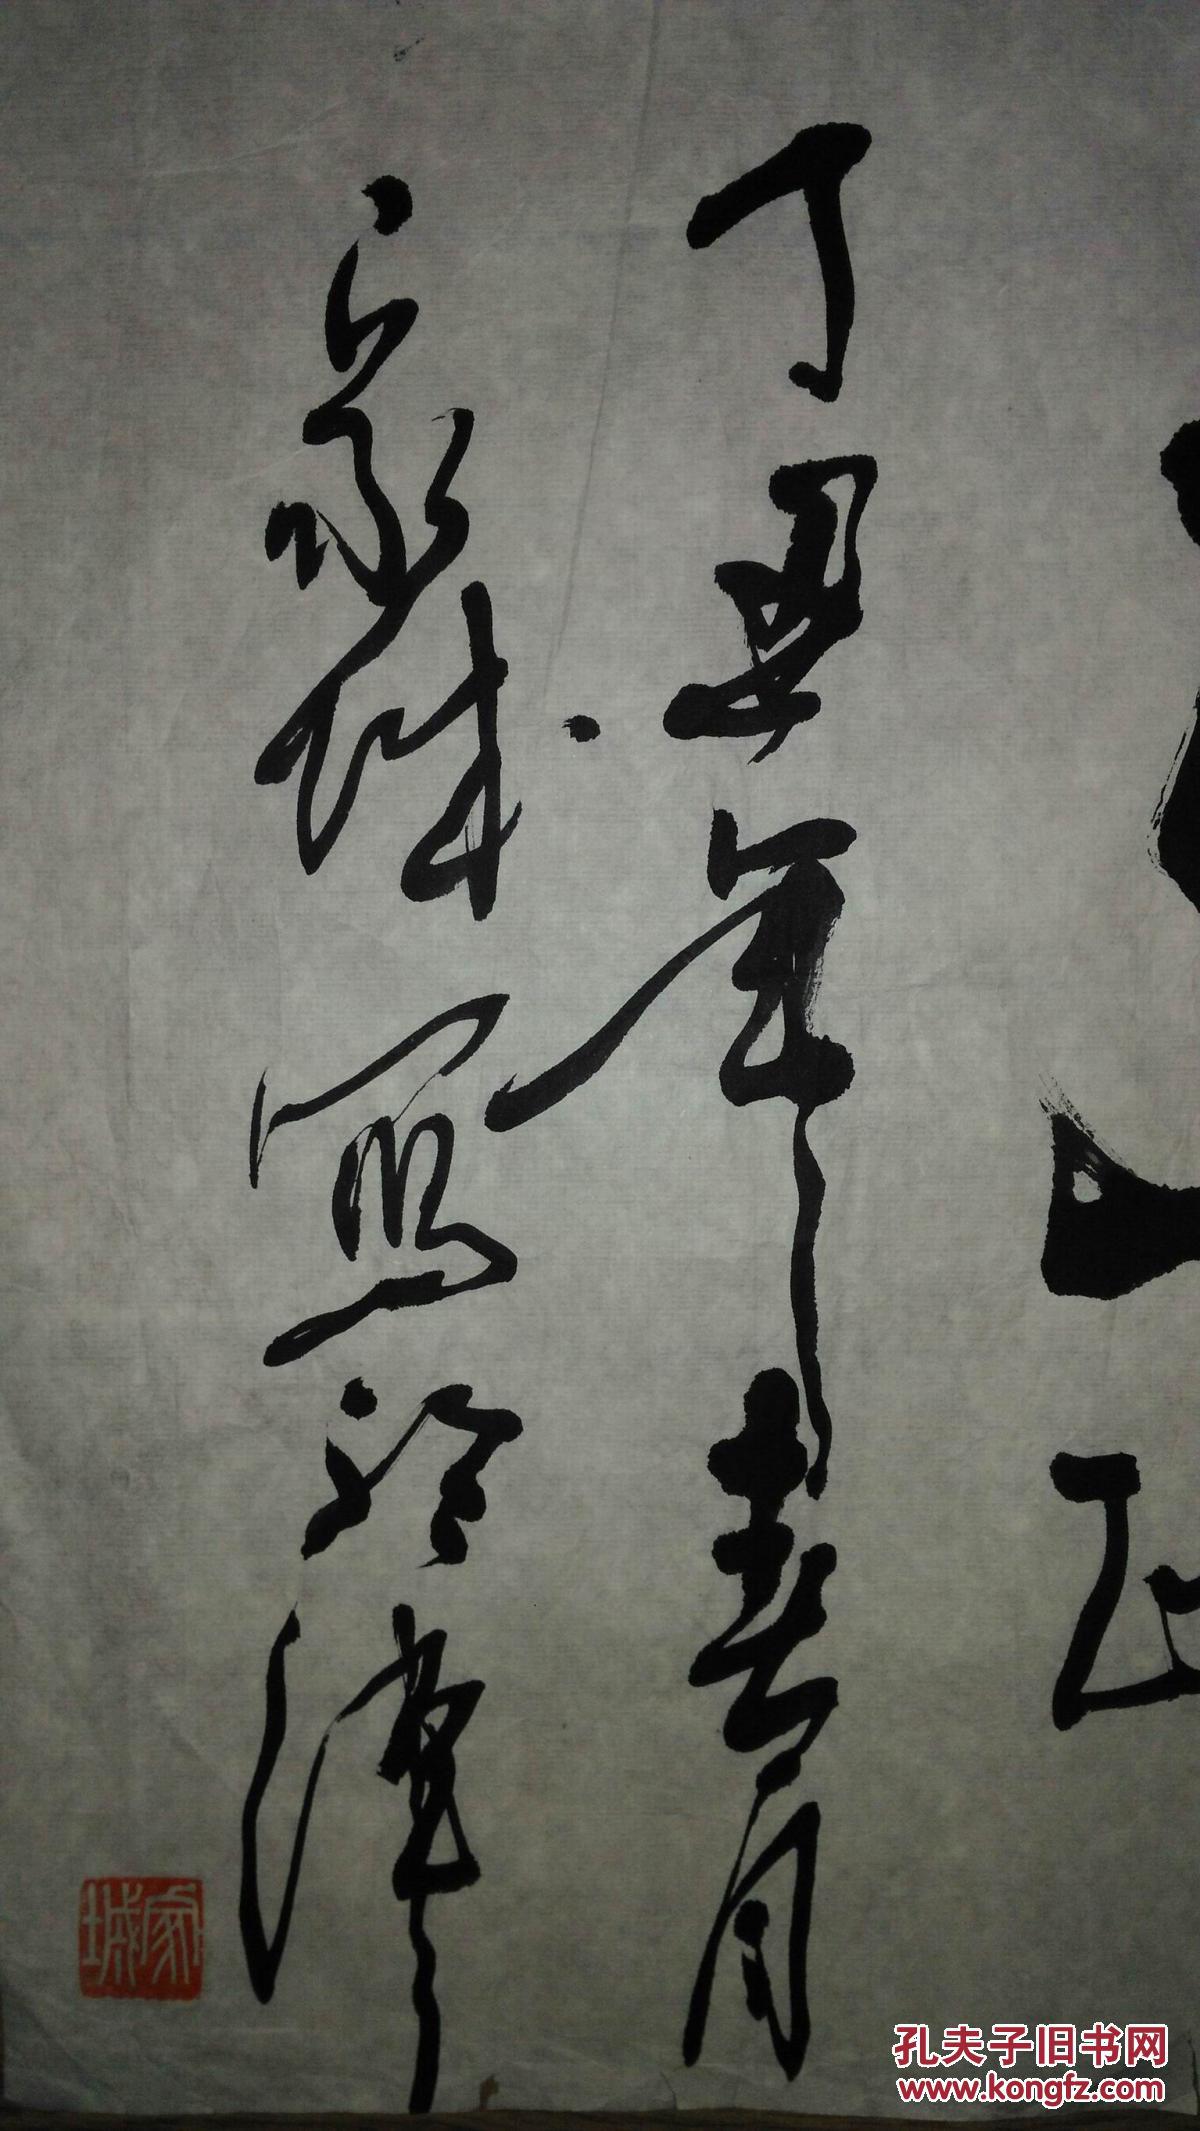 正
丁丑年春月
家城寫於津
家城
孔夫子旧书网
www.kongfz.com